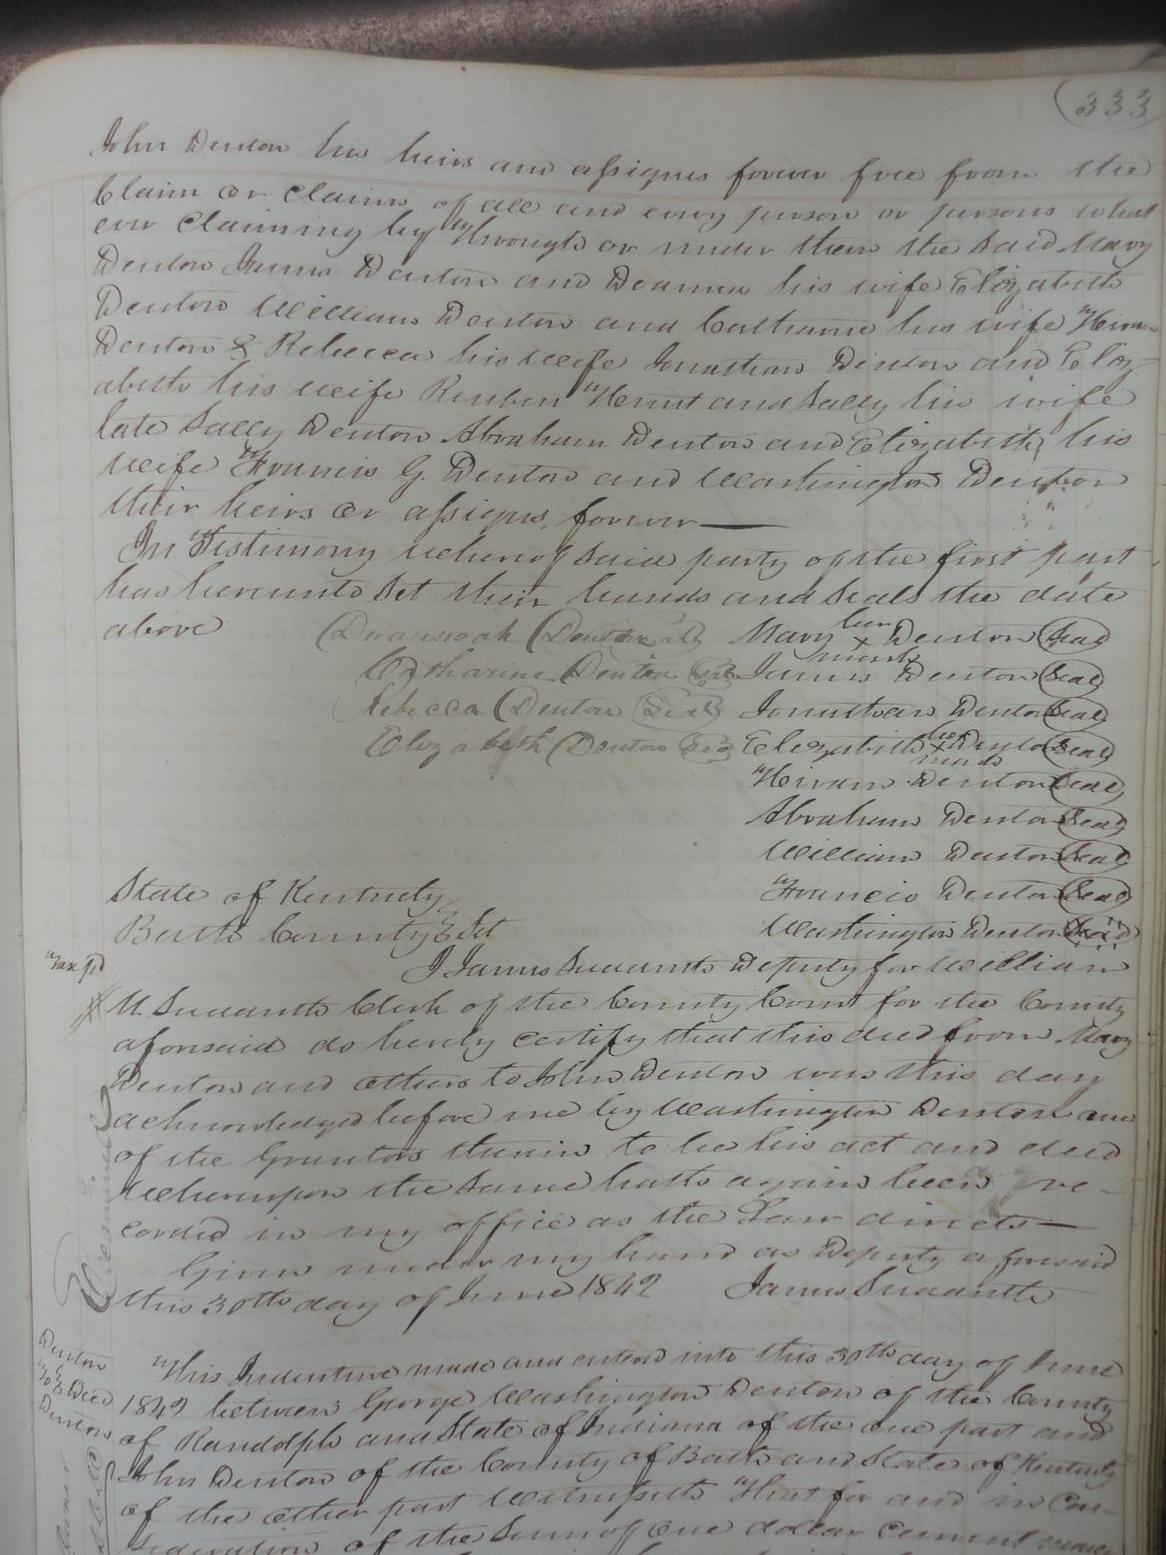 333
John Denton his heirs and assigns forever free from the
Claim or claims of all and every person or persons what
ever Claiming by Through or under them the said Mary
Denton James Denton and his wife Elizabeth
Denton William Denton and Catharine his wife Hiram
Denton & Rebecca his wife Jonathan Denton and Eliz
abeth his wife Reuben Hunt and Sally his wife
late Sally Denton Abraham Denton and Elizabeth his
wife Francis G. Denton and Washington Denton
their heirs or assigns forever
In Testimony whereof said party of the first part
has hereunto set their hands and seals the date
above Denton Seal Mary her x mark Denton Seal
Catharine Denton Seal James Denton Seal
Rebecca Denton Seal Jonathan Denton Seal
Elizabeth Denton Seal Elizabeth her x mark Denton Seal
Hiram Denton Seal
Abraham Denton Seal
William Denton Seal
State of Kentucky Francis Denton Seal
Bath County Sct Washington Denton Seal
Tax pd I James Sudduth Deputy for William
M. Sudduth Clerk of the County Court for the County
aforesaid do hereby certify that this deed from Mary
Denton and others to John Denton was this day
acknowledged before me by Washington Denton one
of the Grantors therein to be his act and deed
Whereupon the same hath again been re-
corded in my office as the Law directs
Given under my hand as Deputy aforesaid
this 30th day of June 1842 James Sudduth
Denton
to Deed
Denton
This Indenture made and entered into this 30th day of June
1842 between George Washington Denton of the County
of Randolph and State of Indiana of the one part and
John Denton of the County of Bath and State of Kentucky
of the other part Witnesseth That for and in Con-
sideration of the sum of One dollar current money